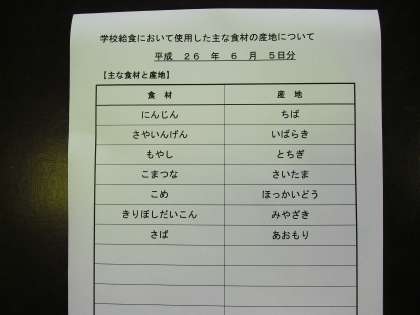 学校給食において使用した主な食材の産地について
平成 ２６ 年 ６ 月 ５日分
【主な食材と産地】
食 材 産 地
にんじん ちば
さやいんげん いばらき
もやし とちぎ
こまつな さいたま
こめ ほっかいどう
きりぼしだいこん みやざき
さば あおもり